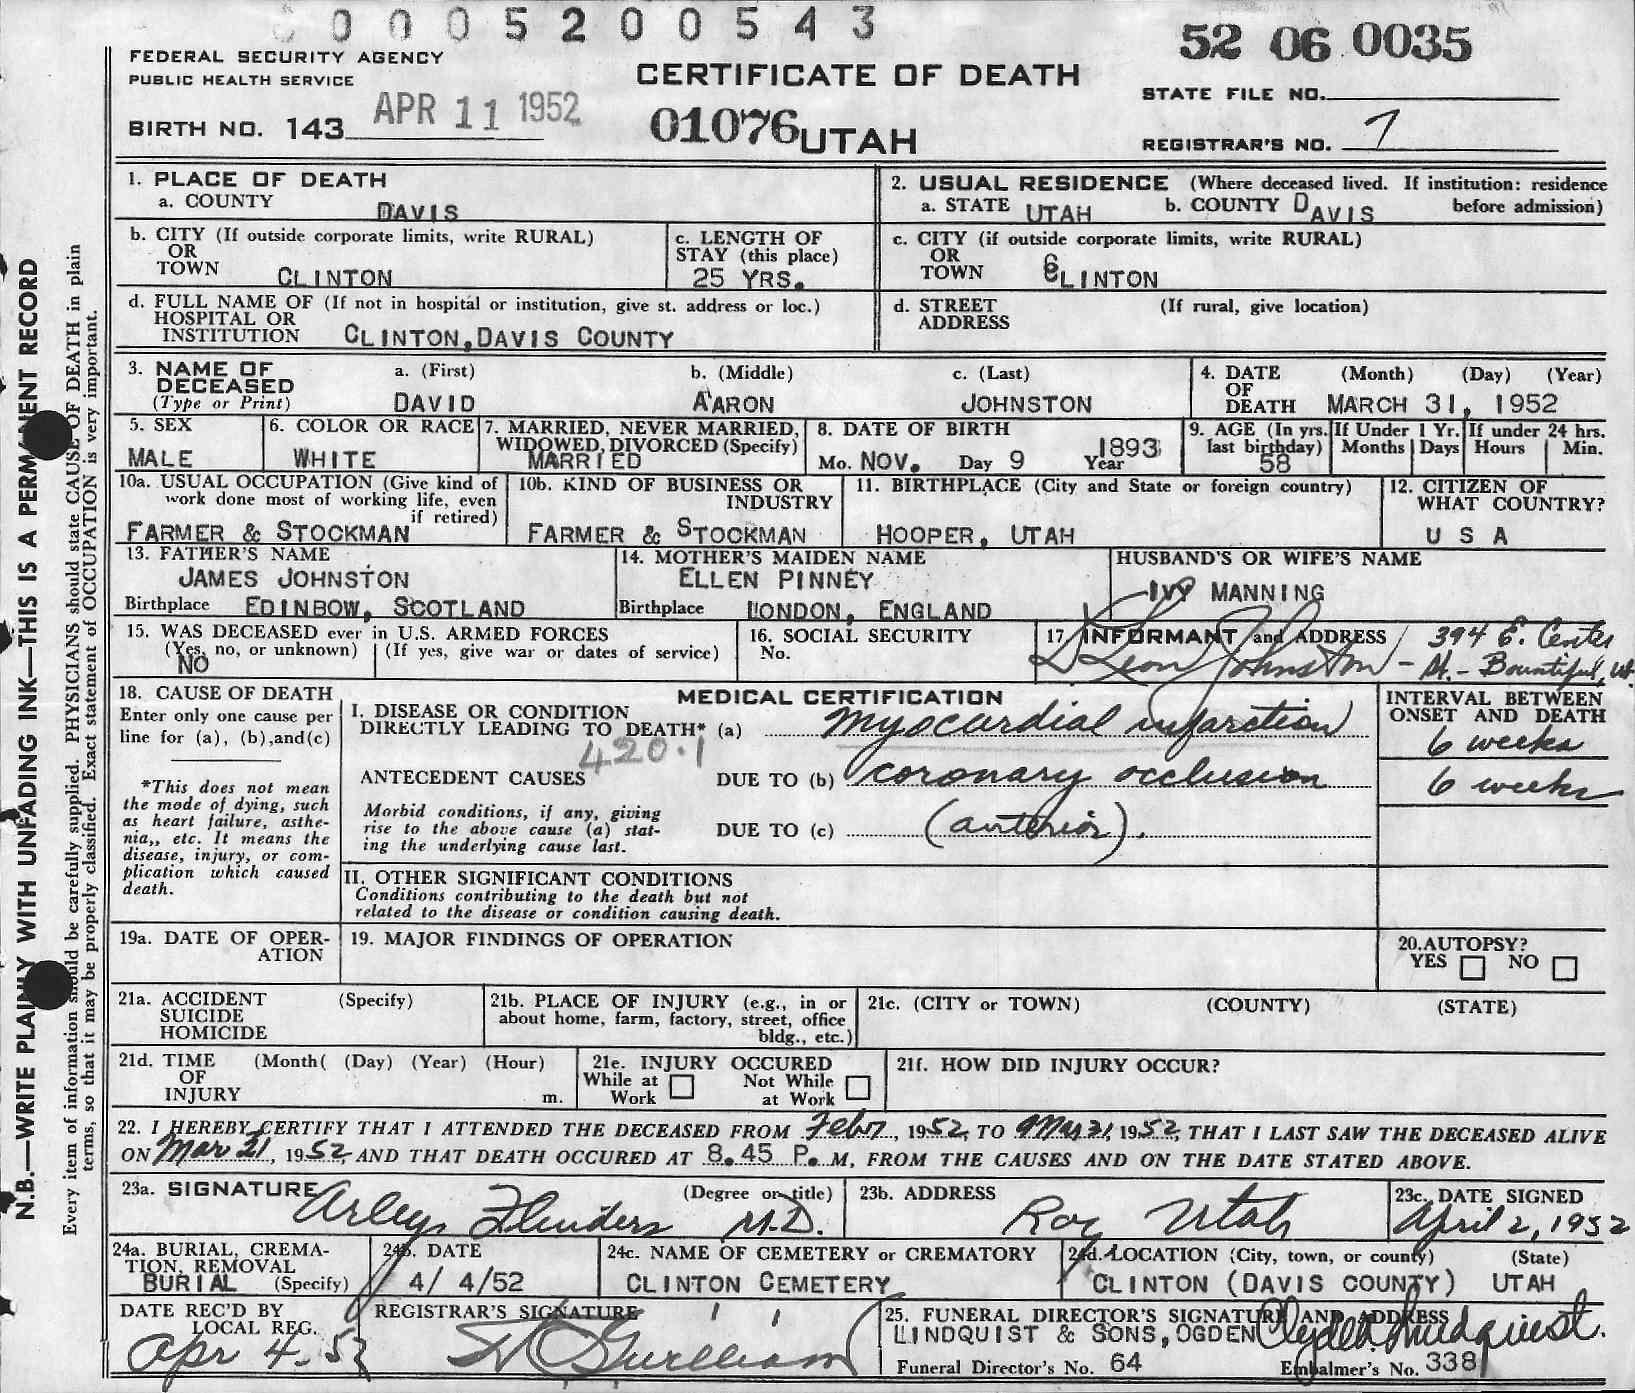 0005200543
52 06 0035
FEDERAL SECURITY AGENCY
PUBLIC HEALTH SERVICE
CERTIFICATE OF DEATH
STATE FILE NO.
APR 11 1952
BIRTH NO. 143
01076 UTAH
REGISTRAR'S NO. 7
N.B.—WRITE PLAINLY WITH UNFADING INK—THIS IS A PERMANENT RECORD
Every item of information should be carefully supplied. PHYSICIANS should state CAUSE OF DEATH in plain
terms, so that it may be properly classified. Exact statement of OCCUPATION is very important.
1. PLACE OF DEATH
a. COUNTY DAVIS
2. USUAL RESIDENCE (Where deceased lived. If institution: residence
a. STATE UTAH b. COUNTY DAVIS before admission)
b. CITY (If outside corporate limits, write RURAL)
OR
TOWN CLINTON
c. LENGTH OF
STAY (this place)
25 YRS.
c. CITY (if outside corporate limits, write RURAL)
OR
TOWN CLINTON
d. FULL NAME OF (If not in hospital or institution, give st. address or loc.)
HOSPITAL OR
INSTITUTION CLINTON, DAVIS COUNTY
d. STREET (If rural, give location)
ADDRESS
3. NAME OF a. (First) b. (Middle) c. (Last)
DECEASED
(Type or Print) DAVID AARON JOHNSTON
4. DATE (Month) (Day) (Year)
OF
DEATH MARCH 31, 1952
5. SEX
MALE
6. COLOR OR RACE
WHITE
7. MARRIED, NEVER MARRIED,
WIDOWED, DIVORCED (Specify)
MARRIED
8. DATE OF BIRTH
Mo. NOV. Day 9 Year 1893
9. AGE (In yrs. last birthday)
58
If Under 1 Yr.
Months Days
If under 24 hrs.
Hours Min.
10a. USUAL OCCUPATION (Give kind of
work done most of working life, even
if retired)
FARMER & STOCKMAN
10b. KIND OF BUSINESS OR
INDUSTRY
FARMER & STOCKMAN
11. BIRTHPLACE (City and State or foreign country)
HOOPER, UTAH
12. CITIZEN OF
WHAT COUNTRY?
U S A
13. FATHER'S NAME
JAMES JOHNSTON
Birthplace EDINBOW, SCOTLAND
14. MOTHER'S MAIDEN NAME
ELLEN PINNEY
Birthplace LONDON, ENGLAND
HUSBAND'S OR WIFE'S NAME
IVY MANNING
15. WAS DECEASED ever in U.S. ARMED FORCES
(Yes, no, or unknown) (If yes, give war or dates of service)
NO
16. SOCIAL SECURITY
No.
17. INFORMANT and ADDRESS 394 E. Center
Leon Johnston - St. - Bountiful, Ut.
18. CAUSE OF DEATH
Enter only one cause per
line for (a), (b), and (c)
*This does not mean
the mode of dying, such
as heart failure, asthe-
nia,, etc. It means the
disease, injury, or com-
plication which caused
death.
MEDICAL CERTIFICATION
I. DISEASE OR CONDITION
DIRECTLY LEADING TO DEATH* (a) Myocardial infarction
420.1
ANTECEDENT CAUSES DUE TO (b) coronary occlusion
Morbid conditions, if any, giving
rise to the above cause (a) stat-
ing the underlying cause last.
DUE TO (c) (anterior).
INTERVAL BETWEEN
ONSET AND DEATH
6 weeks
6 weeks
II. OTHER SIGNIFICANT CONDITIONS
Conditions contributing to the death but not
related to the disease or condition causing death.
19a. DATE OF OPER-
ATION
19. MAJOR FINDINGS OF OPERATION
20. AUTOPSY?
YES NO
21a. ACCIDENT (Specify)
SUICIDE
HOMICIDE
21b. PLACE OF INJURY (e.g., in or
about home, farm, factory, street, office
bldg., etc.)
21c. (CITY or TOWN) (COUNTY) (STATE)
21d. TIME (Month( (Day) (Year) (Hour)
OF
INJURY m.
21e. INJURY OCCURED
While at Work Not While at Work
21f. HOW DID INJURY OCCUR?
22. I HEREBY CERTIFY THAT I ATTENDED THE DECEASED FROM Febr, 1952, TO Mar 31, 1952, THAT I LAST SAW THE DECEASED ALIVE
ON Mar 21, 1952, AND THAT DEATH OCCURED AT 8.45 P. M, FROM THE CAUSES AND ON THE DATE STATED ABOVE.
23a. SIGNATURE (Degree or title)
Arleys Flinders M.D.
23b. ADDRESS
Roy Utah
23c. DATE SIGNED
April 2, 1952
24a. BURIAL, CREMA-
TION, REMOVAL
BURIAL (Specify)
24b. DATE
4/ 4/52
24c. NAME OF CEMETERY OR CREMATORY
CLINTON CEMETERY
24d. LOCATION (City, town, or county) (State)
CLINTON (DAVIS COUNTY) UTAH
DATE REC'D BY
LOCAL REG.
Apr 4-52
REGISTRAR'S SIGNATURE
25. FUNERAL DIRECTOR'S SIGNATURE AND ADDRESS
LINDQUIST & SONS, OGDEN Clyde Lindquist.
Funeral Director's No. 64 Embalmer's No. 338